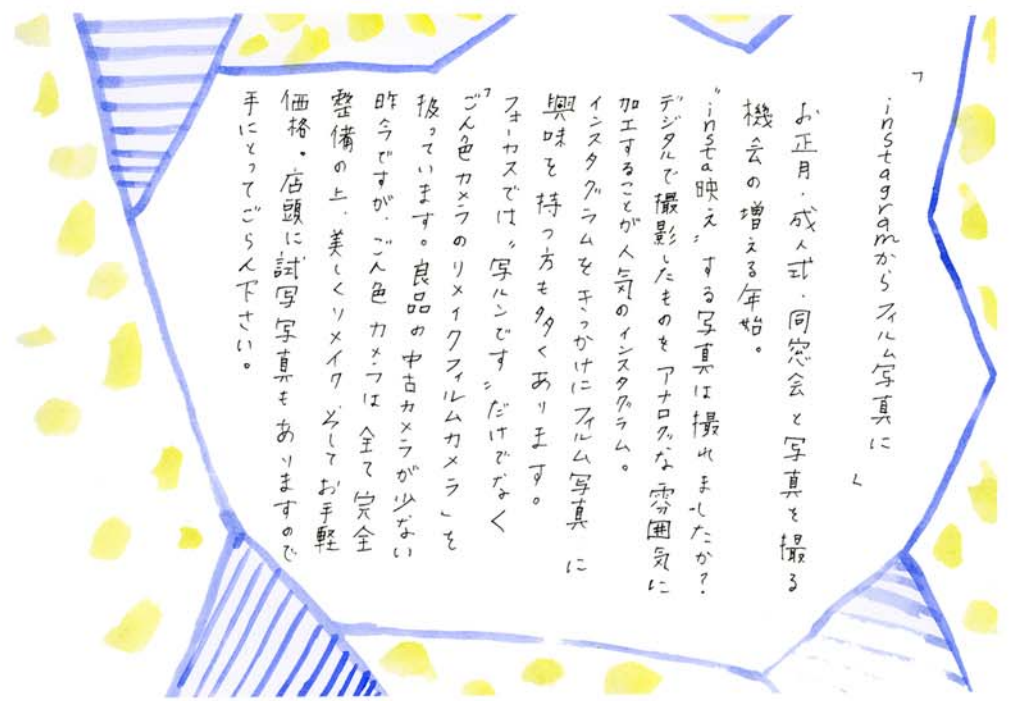 「instagramからフィルム写真に」
お正月・成人式・同窓会と写真を撮る
機会の増える年始。
"insta映え"する写真は撮れましたか?
デジタルで撮影したものをアナログな雰囲気に
加工することが人気のインスタグラム。
インスタグラムをきっかけにフィルム写真に
興味を持つ方も多くあります。
フォーカスでは"写ルンです"だけでなく
「ごん色カメラのリメイクフィルムカメラ」を
扱っています。良品の中古カメラが少ない
昨今ですが、ごん色カメラは全て完全
整備の上、美しくリメイク。そしてお手軽
価格。店頭に試写写真もありますので
手にとってごらん下さい。